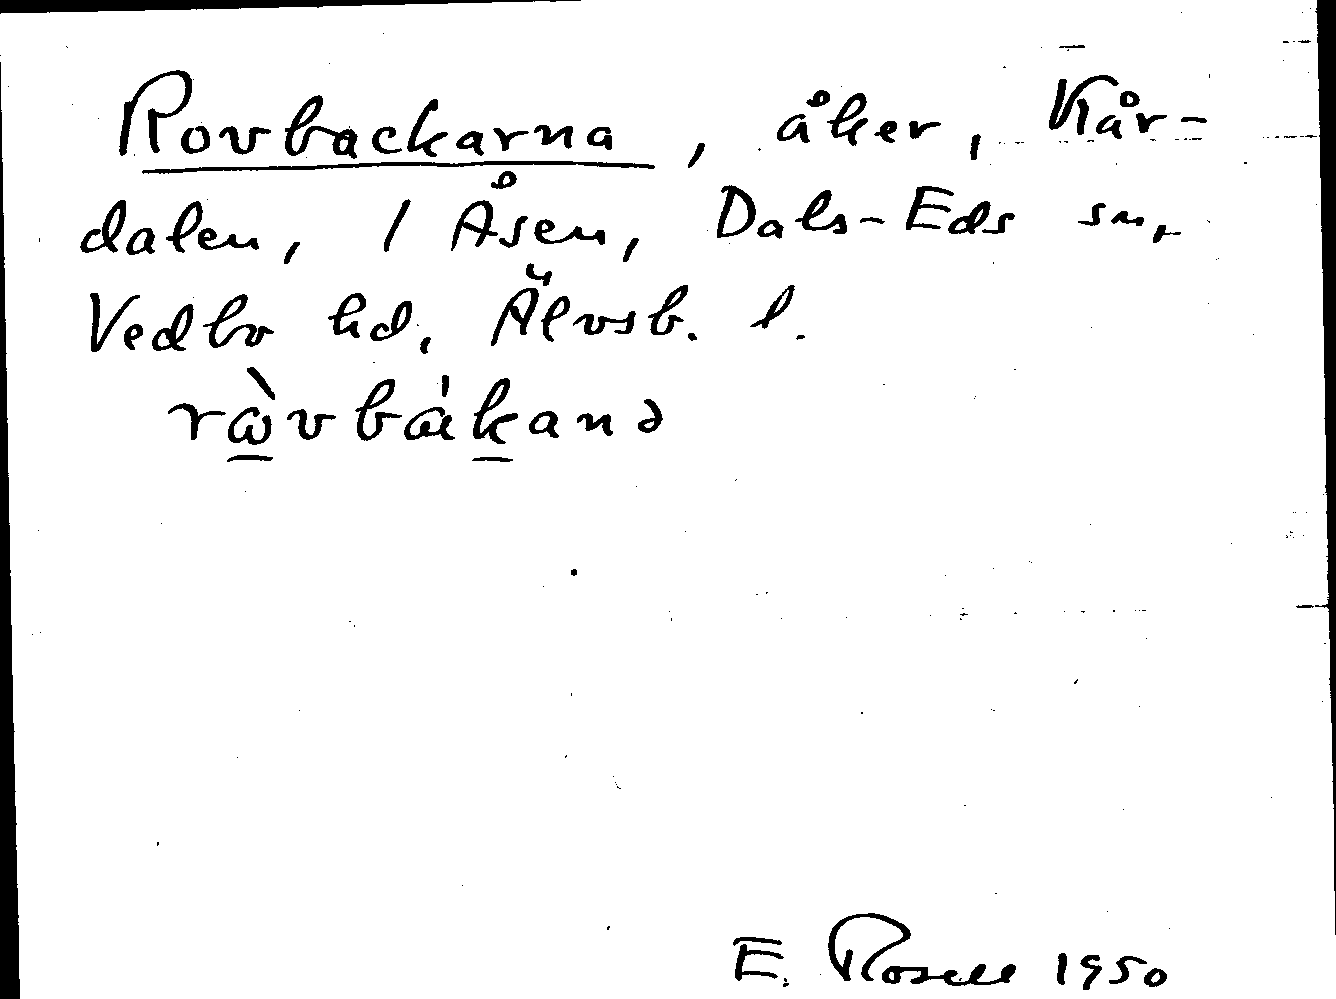 Rovbackarna, åker, Kår-
dalen, 1 Åsen, Dals-Eds sn,
Vedbo hd, Älvsb. l.
rὼvbákanə
E. Rosell 1950